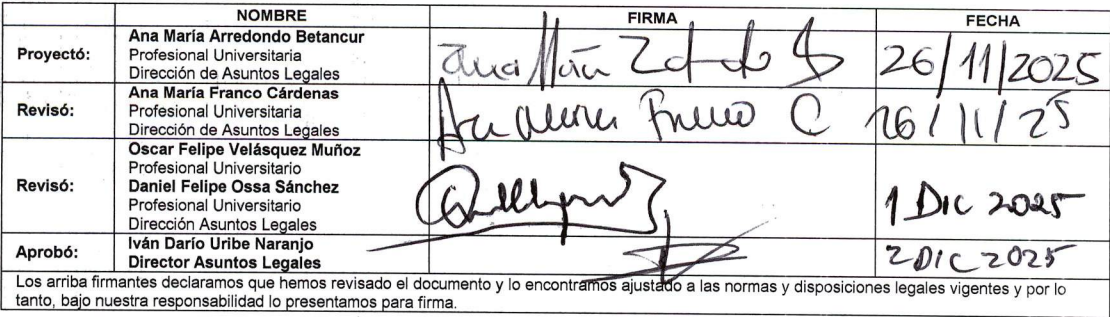 NOMBRE FIRMA FECHA
Proyectó: Ana María Arredondo Betancur
Profesional Universitaria
Dirección de Asuntos Legales
26/11/2025
Revisó: Ana María Franco Cárdenas
Profesional Universitaria
Dirección de Asuntos Legales
Ana María Franco C 26/11/25
Revisó: Oscar Felipe Velásquez Muñoz
Profesional Universitario
Daniel Felipe Ossa Sánchez
Profesional Universitario
Dirección Asuntos Legales
1 Dic 2025
Aprobó: Iván Darío Uribe Naranjo
Director Asuntos Legales
2 DIC 2025
Los arriba firmantes declaramos que hemos revisado el documento y lo encontramos ajustado a las normas y disposiciones legales vigentes y por lo
tanto, bajo nuestra responsabilidad lo presentamos para firma.